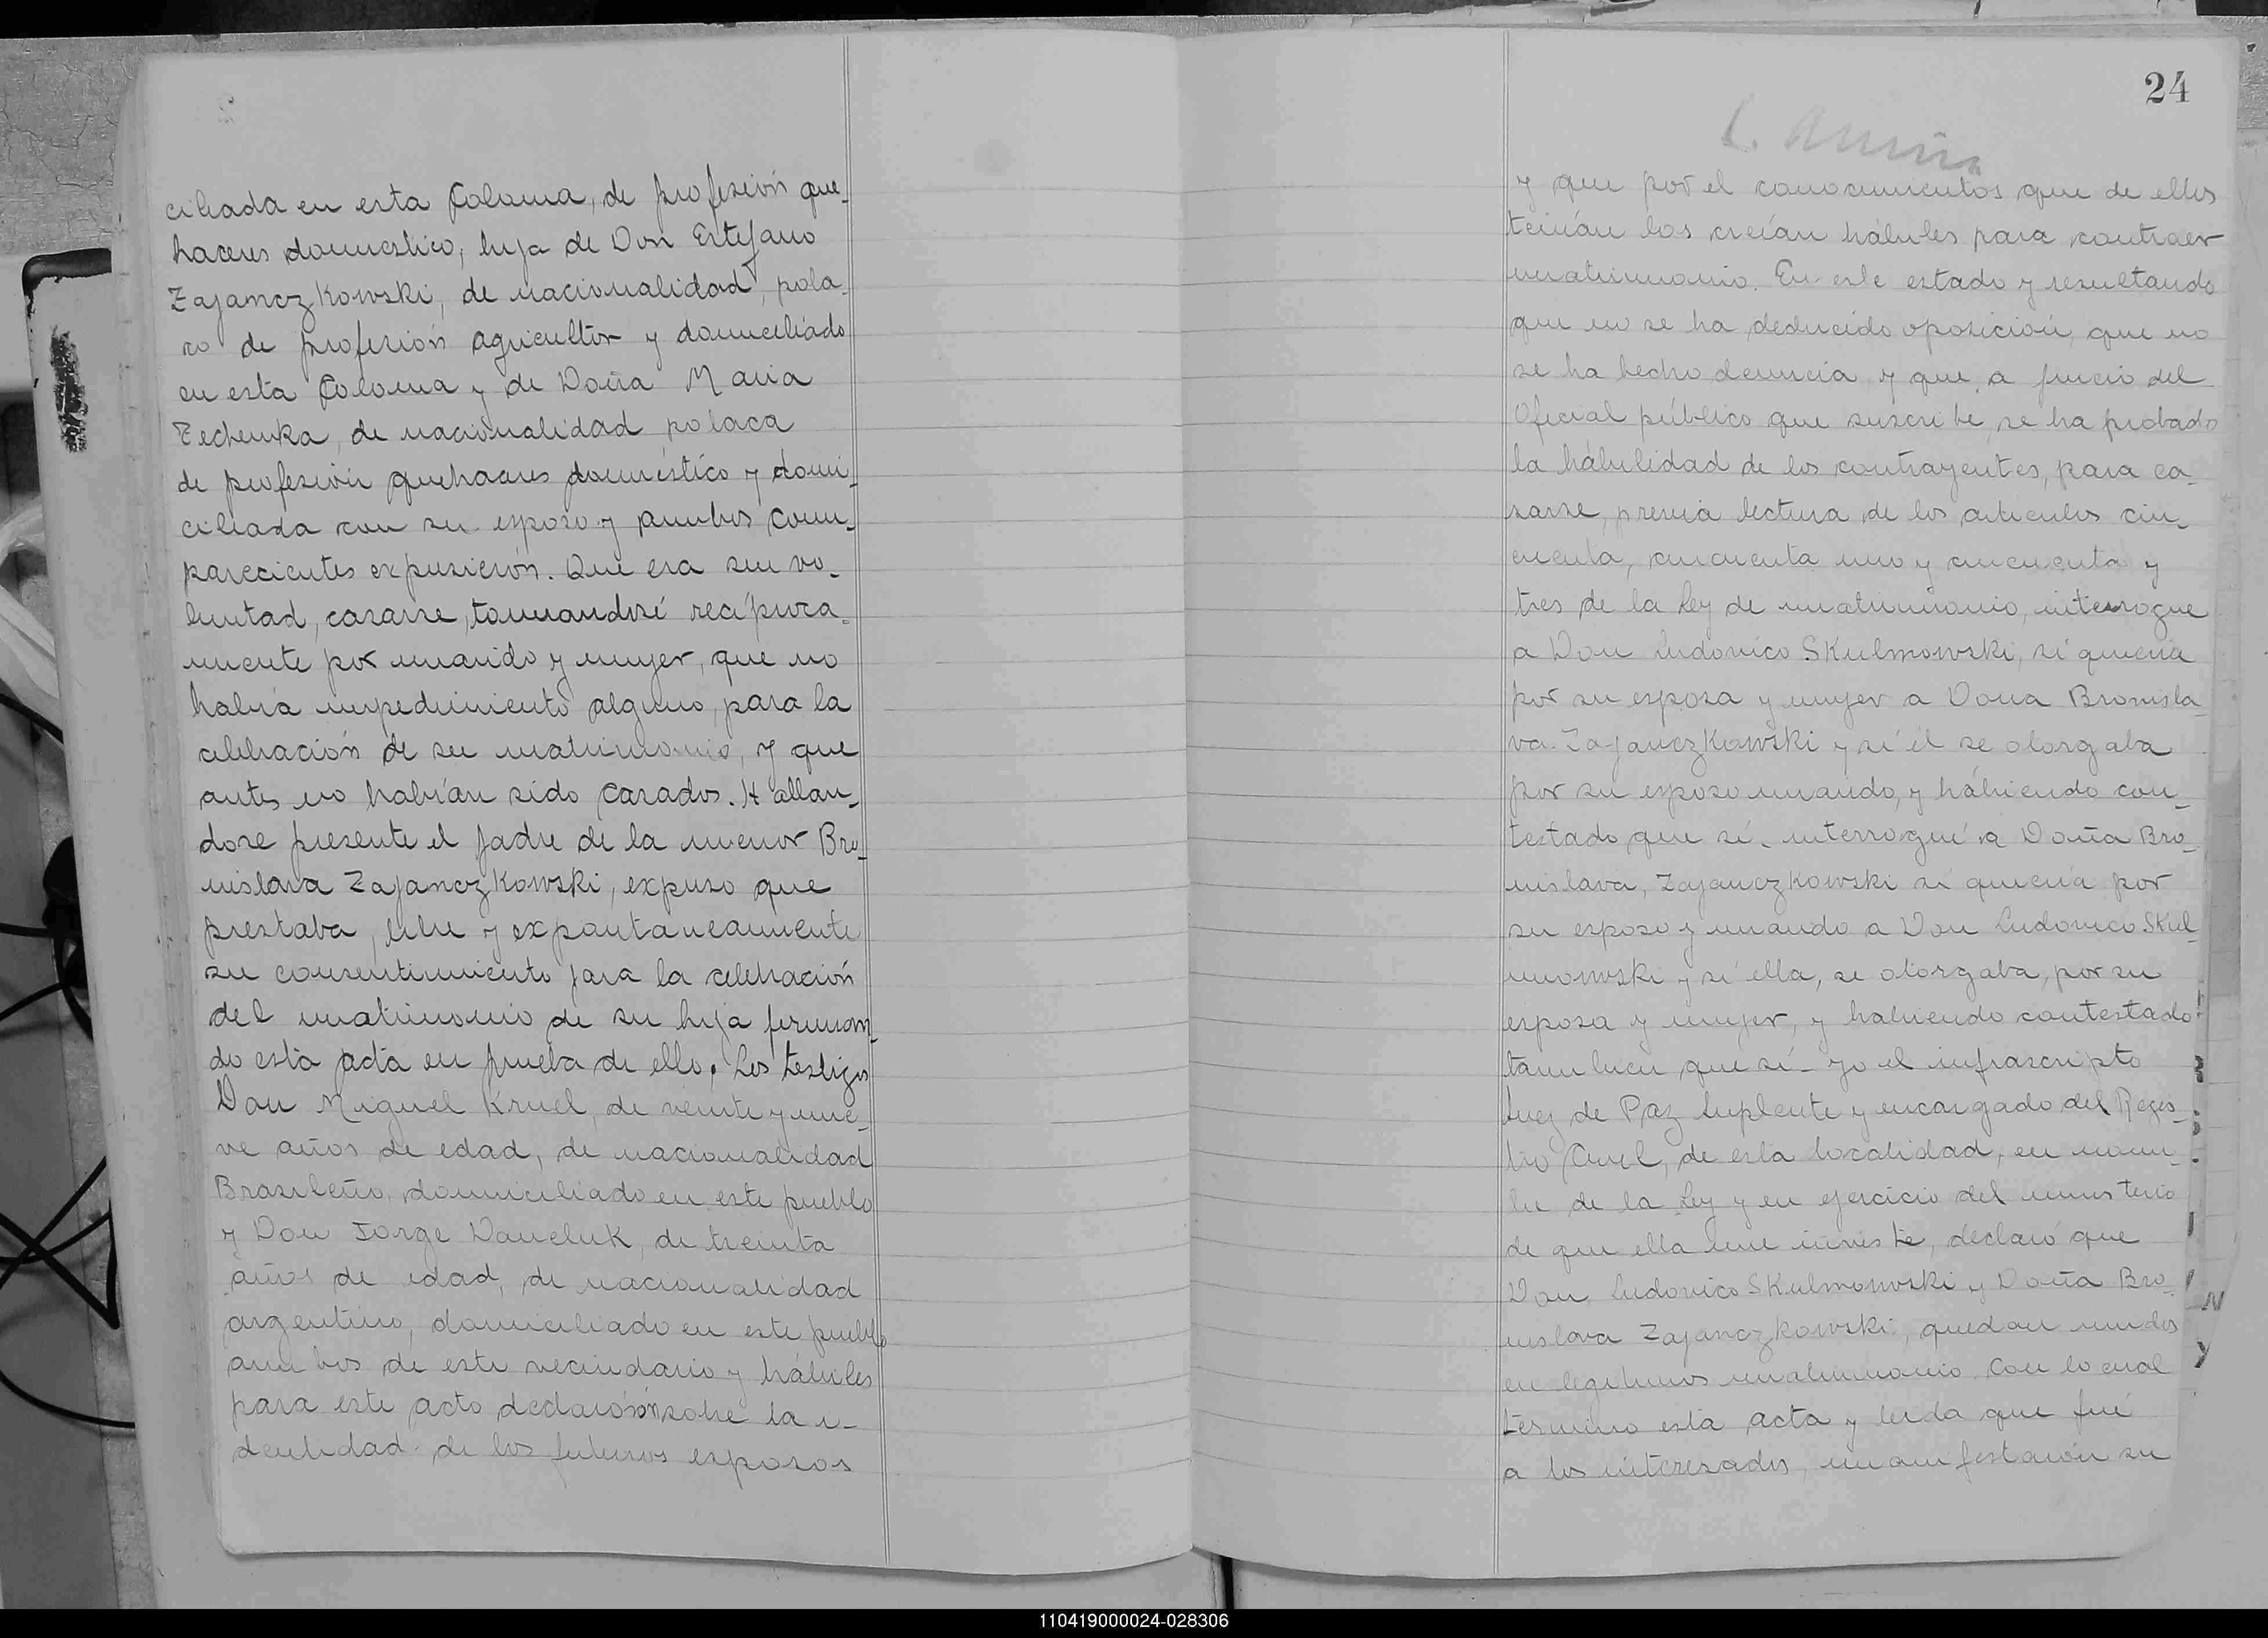 ciliada en esta Colonia, de profesión que-
haceres domestico, hija de Don Estefano
Zajamczkowski, de nacionalidad, pola-
co de profesión agricultor y domiciliado
en esta Colonia y de Doña Maria
Techenka, de nacionalidad polaca
de profesión quehaceres doméstico y domi-
ciliada con su esposo y ambos com-
parecientes expusierón. Que era su vo-
luntad, casarse, tomandosé recíproca-
mente por marido y mujer, que no
había impedimiento alguno, para la
celebración de su matrimonio, y que
antes no habían sido casados. Hallan-
dose presente el padre de la menor Bro-
nislava Zajanczkowski, expuso que
prestaba, libre y expontaneamente
su consentimiento para la celebración
del matrimonio de su hija firmam-
do esta acta en prueba de ello. Los testigos
Don Miguel Kruel, de veinte y nue-
ve años de edad, de nacionalidad
Brasileño, domiciliado en este pueblo
y Don Jorge Daneluk, de treinta
años de edad, de nacionalidad
argentino, domiciliado en este pueblo
ambos de este vecindario y hábiles
para este acto declarórón sobre la i-
dentidad de los futuros esposos
24
y que por el conocimientos que de ellos
teinían los creían hábiles para contraer
matrimonio. En este estado y resultando
que no se ha deducido oposición, que no
se ha hecho denuncia y que a juicio del
Oficial público que suscribe, se ha probado
la hábilidad de los contrayentes, para ca-
sarse, previa lectura de los articulos cin-
cuenta, cincuenta uno y cincuenta y
tres de la Ley de matrimonio, interrogue
a Don Ludovico Skulmowski, sí queria
por su esposa y mujer a Dona Bronisla-
va Zajanczkowski y sí él se otorgaba
por su esposo marido, y hábiendo con-
testado que sí - interrogué a Doña Bro-
nislava, Zajanczkowski sí queria por
su esposo y marido a Don Ludovico Skul-
mowski y sí ella, se otorgaba, por su
esposa y mujer, y habiendo contestado
tambien que sí - yo el infrascripto
Juez de Paz Suplente y encargado del Regis-
tro Civil, de esta localidad, en nom-
bre de la Ley y en ejercicio del ministerio
de que ella me inviste, declaró que
Don Ludovico Skulmowski y Doña Bro-
nislava Zajanczkowski, quedan unidos
en legitimos matrimonio. Con lo cual
termino esta acta y leida que fué
a los interesados, manifestarón su
110419000024-028306